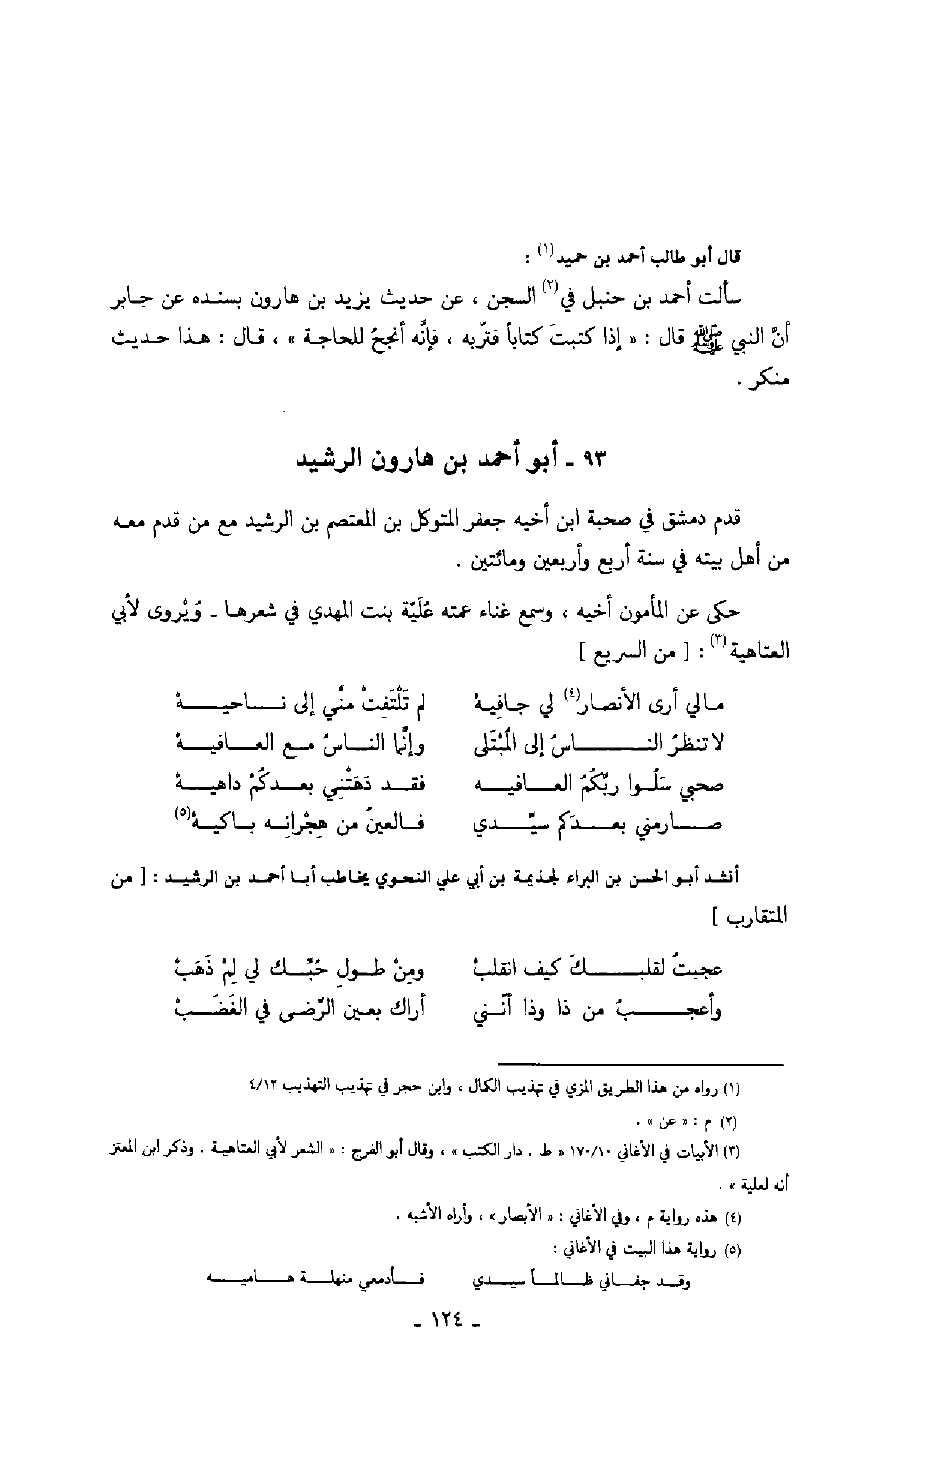 قال أبو طالب أحمد بن حميد(١) :
سألت أحمد بن حنبل في(٢) السجن ، عن حديث يزيد بن هارون بسنده عن جابر
أنَّ النبي ﷺ قال : « إذا كتبتَ كتاباً فترّبه ، فإنَّه أنجحُ للحاجة » ، قال : هذا حديث
منكر .
٩٣ - أبو أحمد بن هارون الرشيد
قدم دمشق في صحبة ابن أخيه جعفر المتوكل بن المعتصم بن الرشيد مع من قدم معه
من أهل بيته في سنة أربع وأربعين ومائتين .
حكى عن المأمون أخيه ، وسمع غناء عمته عُلَيّة بنت المهدي في شعرها - وُيْروى لأبي
العتاهية(٣) : [ من السريع ]
مالي أرى الأنصار(٤) لي جافِيهْ لم تَلْتَفِتْ منّي إلى ناحيهْ
لا تنظرُ الناسُ إلى المُبْتَلى وإنَّما الناسُ مع العافيهْ
صحبي سَلُوا ربَّكُمُ العافيه فقد دَهَتْني بعدكُمْ داهيهْ
صارمني بعدَكم سيّدي فالعينُ من هِجْرانِه باكيهْ(٥)
أنشد أبو الحسن بن البراء لجذيمة بن أبي علي النحوي يخاطب أبا أحمد بن الرشيد : [ من
المتقارب ]
عجبتُ لقلبكَ كيف انقلبْ ومِنْ طولِ حُبّك لي لِمْ ذَهَبْ
وأعجبُ من ذا وذا أنّني أراك بعينِ الرّضى في الغَضَبْ
(١) رواه من هذا الطريق المزي في تهذيب الكمال ، وابن حجر في تهذيب التهذيب ٤/١٢
(٢) م : « عن » .
(٣) الأبيات في الأغاني ١٧٠/١٠ « ط . دار الكتب » ، وقال أبو الفرج : « الشعر لأبي العتاهية . وذكر ابن المعتز
أنه لعلية » .
(٤) هذه رواية م ، وفي الأغاني : « الأبصار » ، وأراه الأشبه .
(٥) رواية هذا البيت في الأغاني :
وقد جفاني ظالماً سيدي فأدمعي منهلة هاميه
- ١٢٤ -